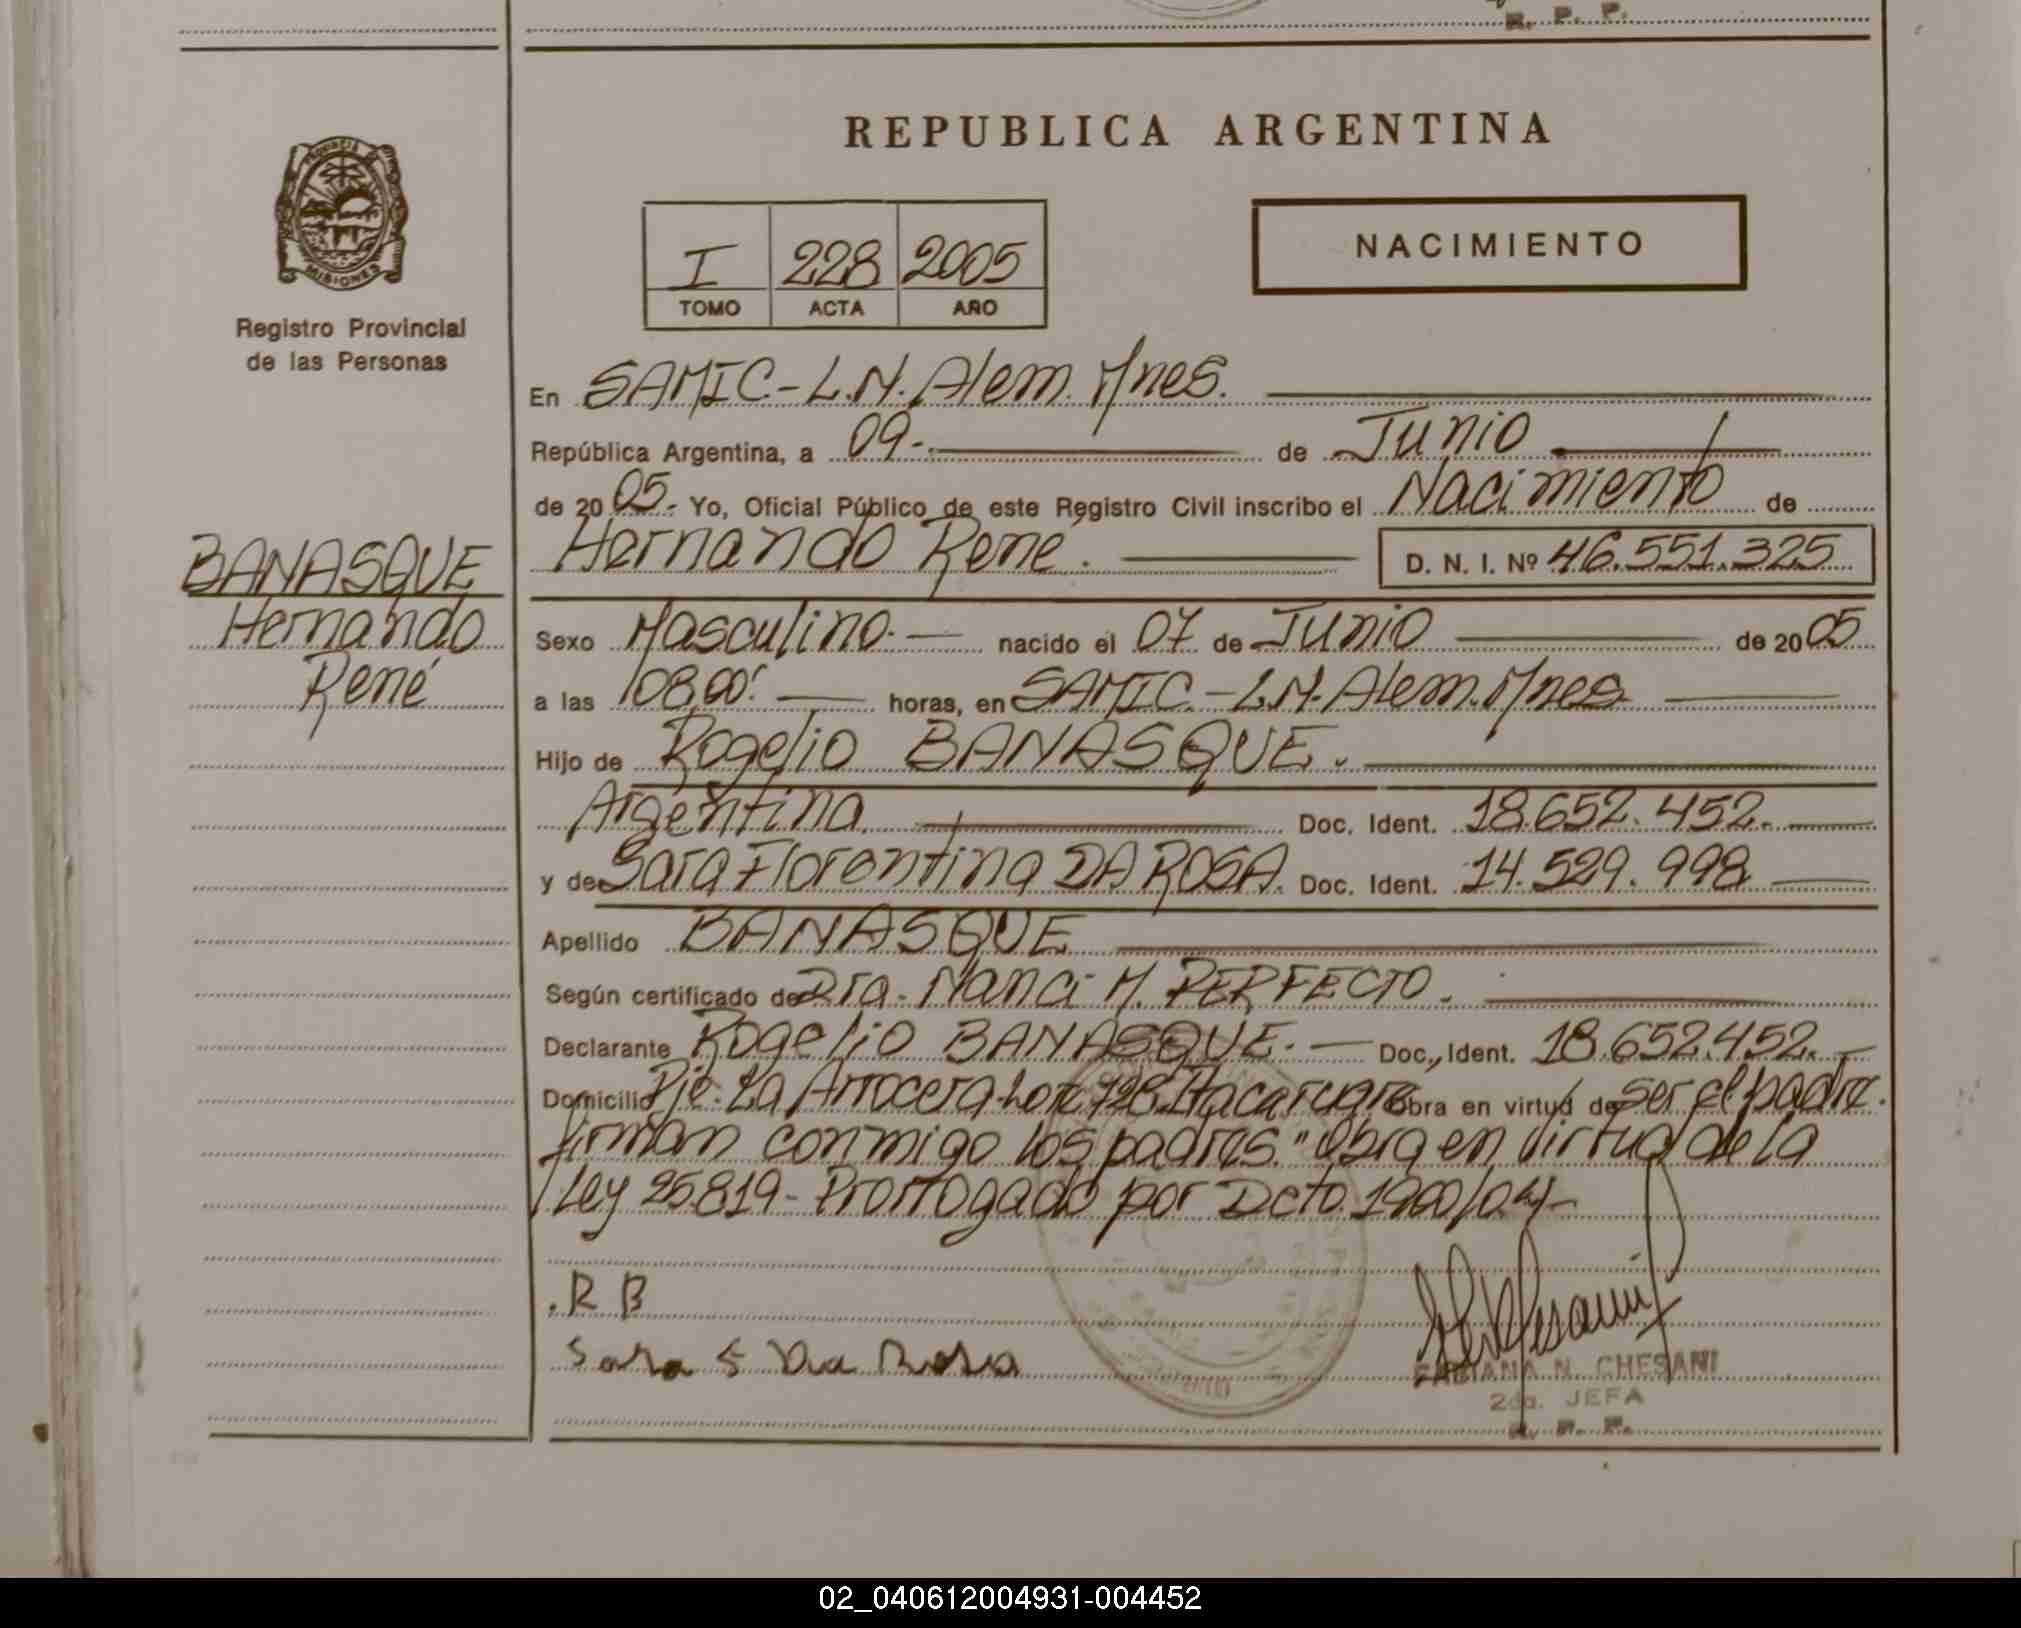 R. P. P.
REPUBLICA ARGENTINA
PROVINCIA DE MISIONES
Registro Provincial
de las Personas
I 228 2005
TOMO ACTA AÑO
NACIMIENTO
En SAMIC-L.N.Alem.Mnes.
República Argentina, a 09- de Junio
de 2005- Yo, Oficial Público de este Registro Civil inscribo el Nacimiento de
Hernando René. D. N. I. Nº 46.551.325
BANASQUE
Hernando
René
Sexo Masculino.- nacido el 07 de Junio de 2005
a las 08,00' horas, en SAMIC.-L.N.Alem.Mnes
Hijo de Rogelio BANASQUE.
Argentina Doc. Ident. 18.652.452.
y de Sara Florentina DA ROSA. Doc. Ident. 14.529.998
Apellido BANASQUE
Según certificado de Dra. Nanci M. PERFECTO.
Declarante Rogelio BANASQUE.- Doc. Ident. 18.652.452.-
Domicilio Pje. La Arrocera-Lote 728 Itacaruare Obra en virtud de ser el padre.
firman conmigo los padres. "Obra en virtud de la
Ley 25.819- Prorrogado por Dcto. 1900/04-
.R B
Sara F Da Rosa
FABIANA N. CHESANI
2da. JEFA
R. P. P.
02_040612004931-004452